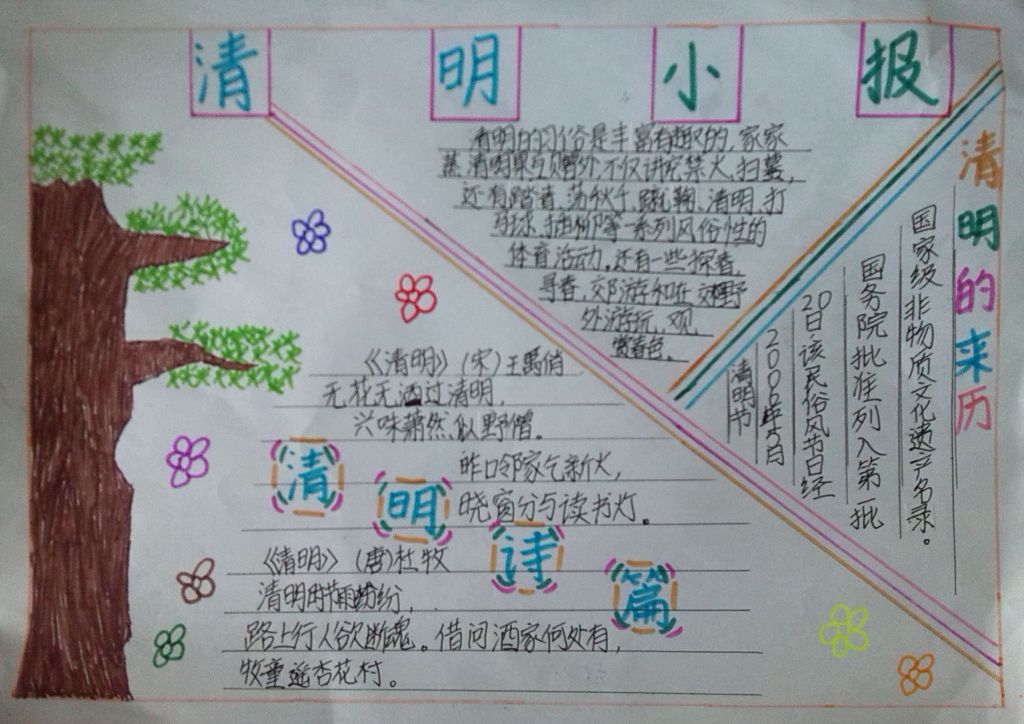 清明小报
清明的习俗是丰富有趣的,家家
蒸清明果互赠外,不仅讲究禁火,扫墓,
还有踏青、荡秋千、蹴鞠、清明、打
马球、插柳等一系列风俗性的
体育活动。还有一些探春,
寻春,郊游和在郊野
外游玩,观
赏春色。
清明的来历
清明节
2006年月
20日该民俗风节日经
国务院批准列入第一批
国家级非物质文化遗产名录。
清明诗篇
《清明》(宋)王禹
无花无酒过清明,
兴味萧然似野僧。
昨口邻家乞新火,
晓窗分与读书灯。
《清明》(唐)杜牧
清明时节雨纷纷,
路上行人欲断魂。借问酒家何处有,
牧童遥杏花村。